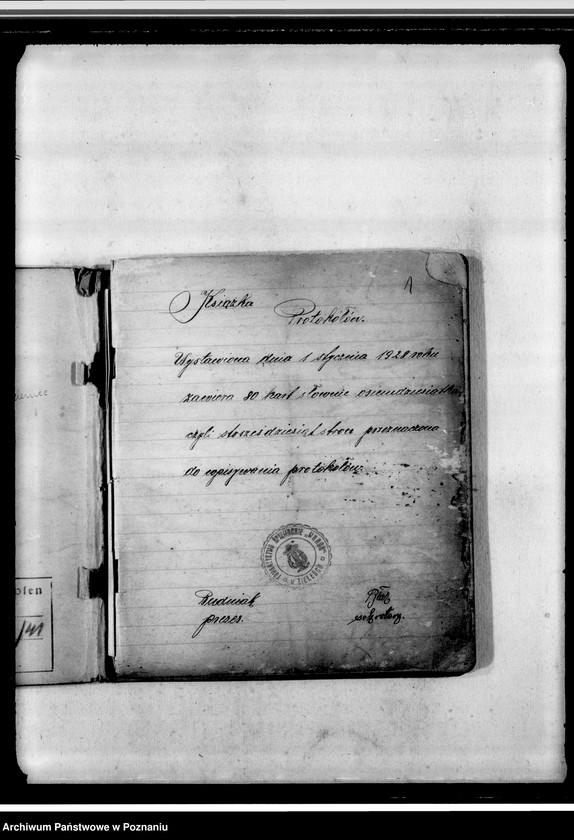 1
Książka
Protokółów.
Wystawiona dnia 1 stycznia 1928 roku
zawiera 80 kart słownie osiemdziesiąt
czyli stosześdziesiąt stron przeznaczona
do wpisywania protokółów.
Budniak
prezes.
sekretarz.
olen
/41
Archiwum Państwowe w Poznaniu